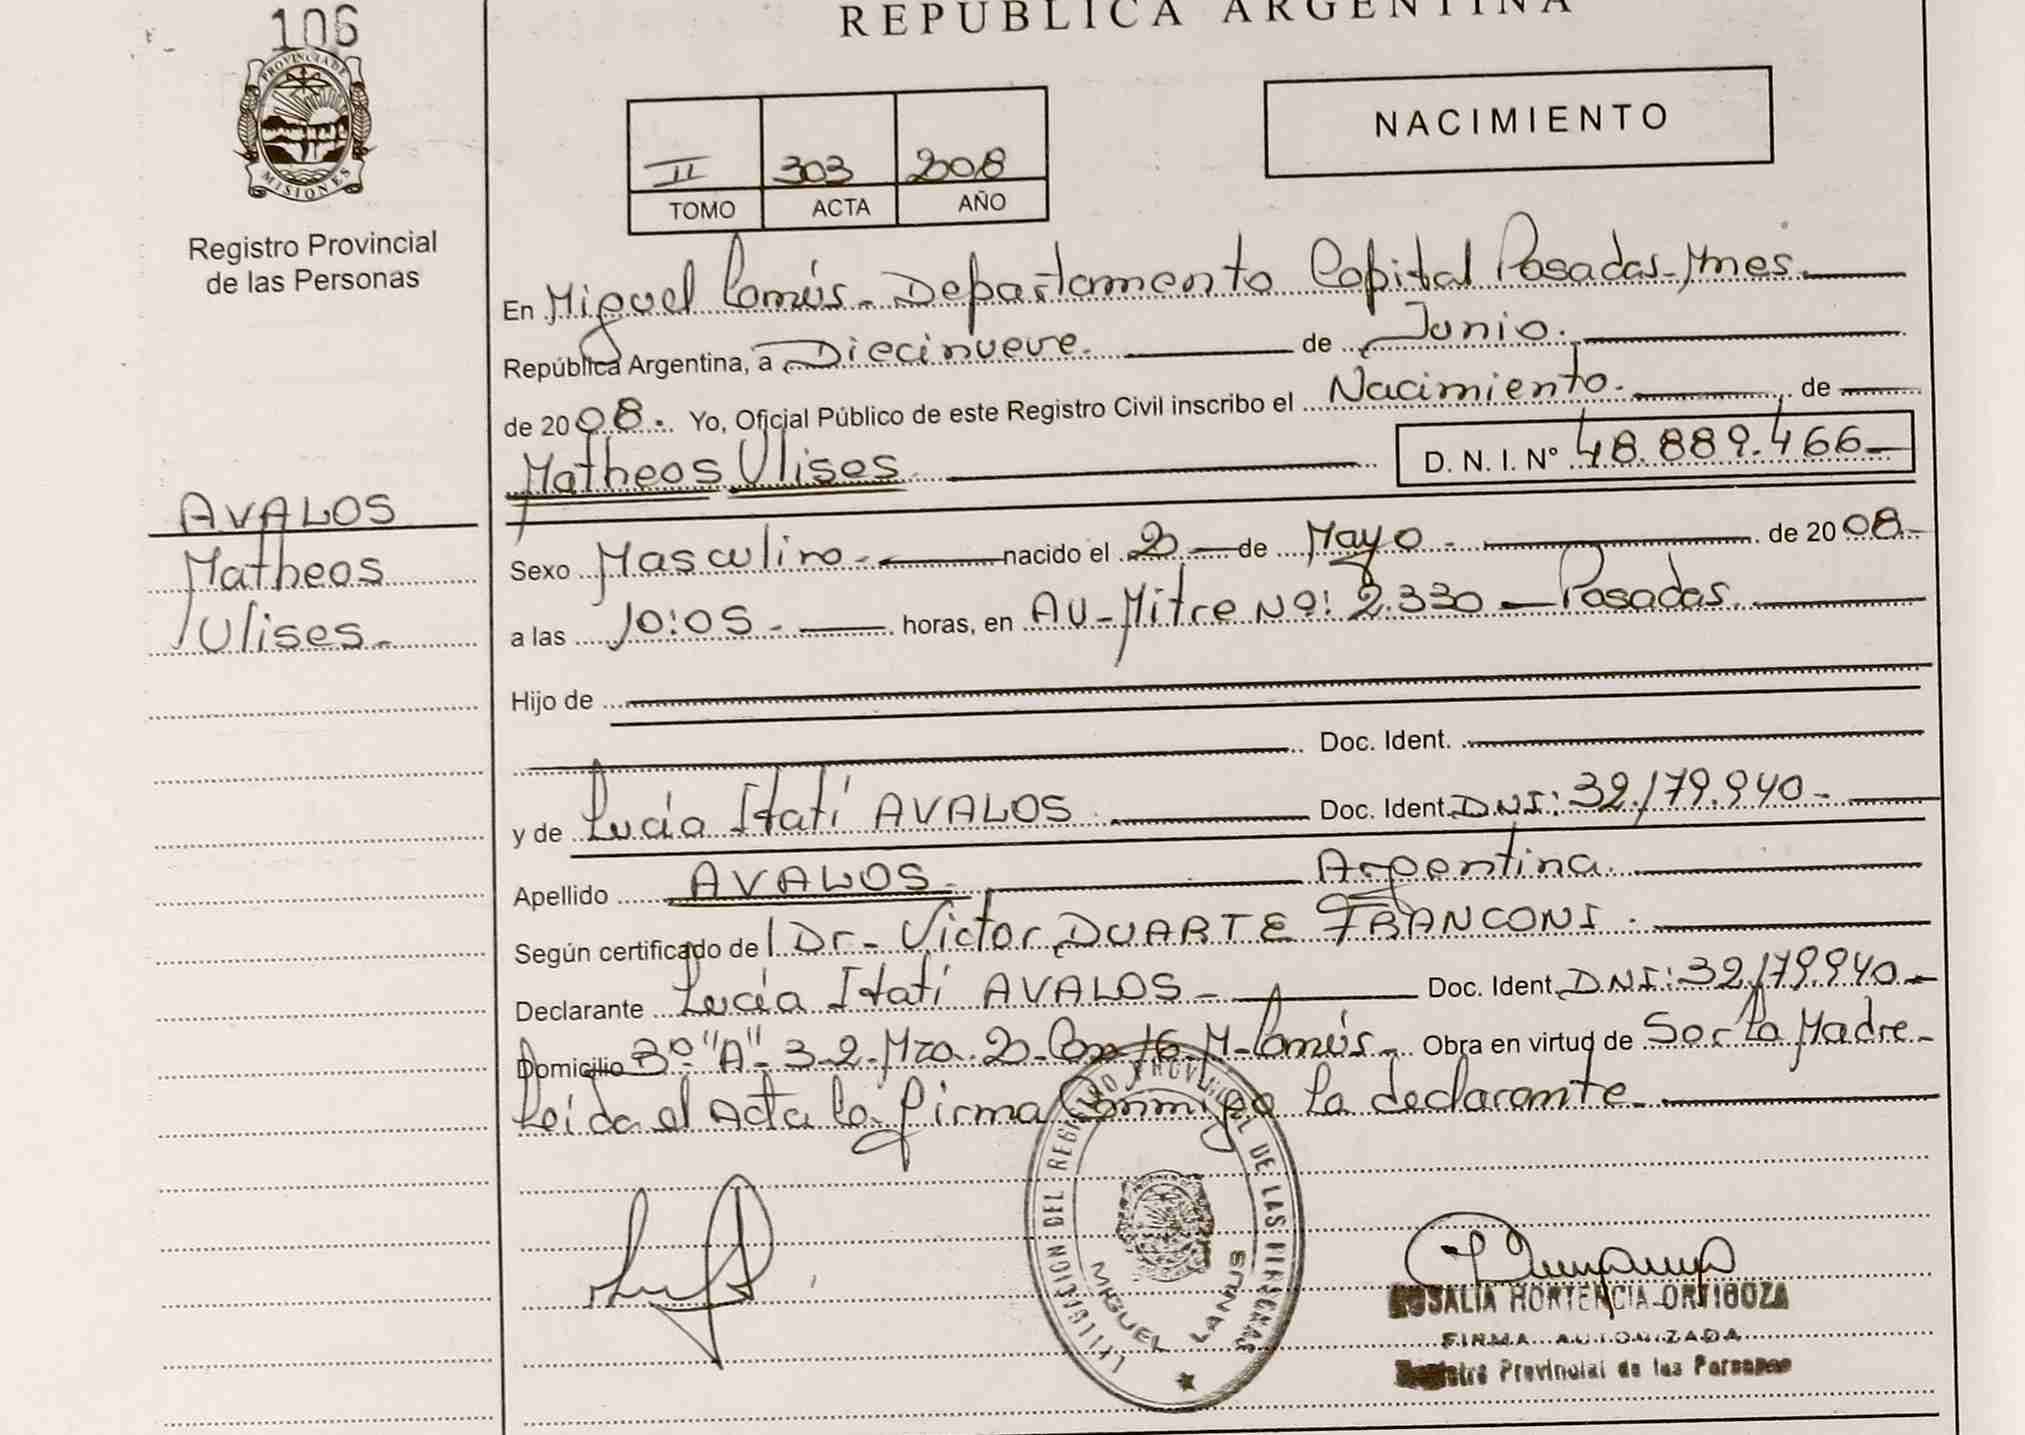 106
REPUBLICA ARGENTINA
PROVINCIA DE MISIONES
Registro Provincial
de las Personas
II 303 2008
TOMO ACTA AÑO
NACIMIENTO
En Miguel Lanús - Departamento Capital Posadas - Mnes.
República Argentina, a Diecinueve. de Junio.
de 2008. Yo, Oficial Público de este Registro Civil inscribo el Nacimiento. de
Matheos Ulises. D. N. I. Nº 48.889.466-
AVALOS
Matheos
Ulises-
Sexo Masculino - nacido el 20 - de Mayo - de 2008-
a las 10:05 - horas, en AV-Mitre Nº: 2.330 - Posadas.
Hijo de
Doc. Ident.
y de Lucía Itatí AVALOS. Doc. Ident. DNI: 32.179.940-
Apellido AVALOS- Argentina.
Según certificado de Dr- Victor DUARTE FRANCONI.
Declarante Lucía Itatí AVALOS - Doc. Ident. DNI: 32.179.940-
Domicilio 3º "A"- 3-2-Mza. 20- M-Lanús- Obra en virtud de Ser La Madre-
Leída el Acta la firma Conmigo La declarante-
DELEGACION DEL REGISTRO PROVINCIAL DE LAS PERSONAS
MIGUEL LANUS
ROSALIA HORTENCIA ORTIGOZA
FIRMA AUTORIZADA
Registro Provincial de las Personas